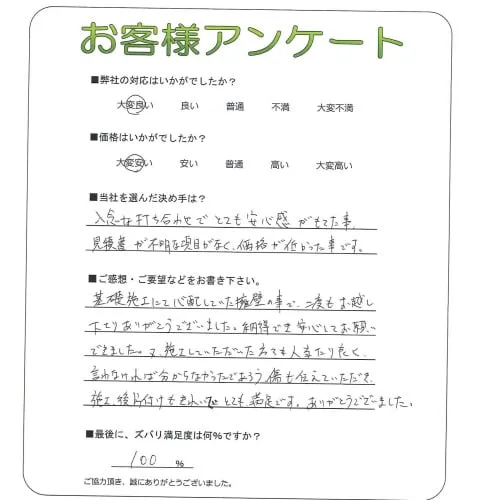 お客様アンケート
■弊社の対応はいかがでしたか？
大変良い 良い 普通 不満 大変不満
■価格はいかがでしたか？
大変安い 安い 普通 高い 大変高い
■当社を選んだ決め手は？
入念な打ち合わせで とても 安心感 がもてた事、
見積書 が不明な項目がなく、価格が低かった事です。
■ご感想・ご要望などをお書き下さい。
基礎施工にて心配していた擁壁の事で、二度も お越し
下さりありがとうございました。納得でき安心してお願い
できました。又、施工していただいた方ても人当たり良く、
言わなければ分からなかったであろう 傷も伝えていただき、
施工後片付けもきれいで とても、満足です。ありがとうございました。
■最後に、ズバリ満足度は何％ですか？
100 ％
ご協力頂き、誠にありがとうございました。